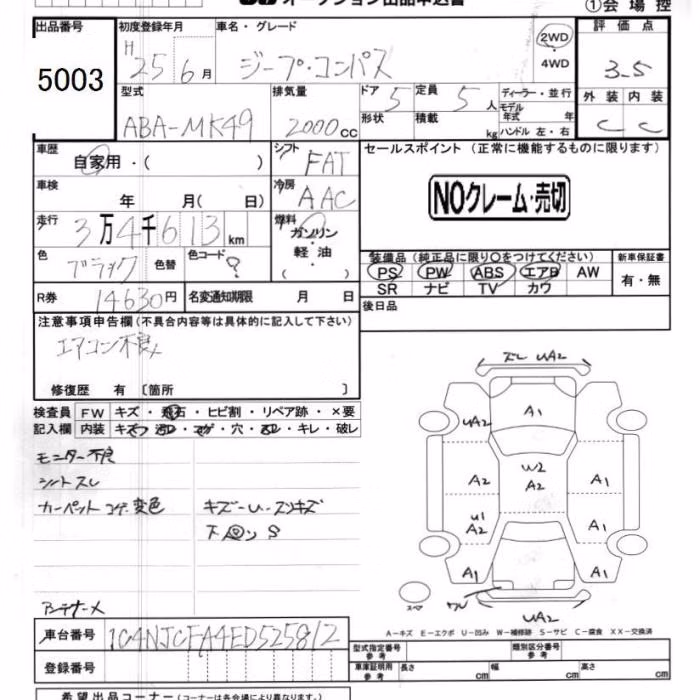 オークション出品申込書
①会場控
出品番号
5003
初度登録年月
H 25 6月
車名・グレード
ジープ・コンパス
2WD
・
4WD
評価点
3.5
型式
ABA-MK49
排気量
2000cc
ドア 5
定員 5人
形状
積載 kg
ディーラー・並行
モデル年式 年
ハンドル 左・右
外装 内装
C C
車歴
自家用・( )
シフト
FAT
セールスポイント (正常に機能するものに限ります)
NOクレーム・売切
車検
年 月( 日)
冷房
AAC
走行
3万4千613km
燃料
ガソリン
・
軽油
( )
色
ブラック 色替
色コード
?
装備品(純正品に限り○をつけてください)
PS PW ABS エアB AW
SR ナビ TV カワ
新車保証書
有・無
R券 14630円
名変通知期限 月 日
後日品
注意事項申告欄(不具合内容等は具体的に記入して下さい)
エアコン不良
修復歴 有 〔箇所 〕
検査員記入欄
FW キズ・飛石・ヒビ割・リペア跡・×要
内装 キズ・汚れ・コゲ・穴・・キレ・破レ
モニター不良
シートスレ
カーペット コゲ.変色
キズ〜U・スンキズ
下回りS
アンテナ-メ
スレ UA2
A1
UA2
W2
A2
A2
A1
U1
A2
A1
A1
A1
スペア
ワレ
UA2
A-キズ E-エクボ U-凹み W-補修跡 S-サビ C-腐食 XX-交換済
車台番号 1C4NJCFA4ED525812
登録番号
型式指定番号
参考
類別区分番号
参考
車庫証明用
参考
長さ cm
幅 cm
高さ cm
希望出品コーナー(コーナーは各会場により異なります。)